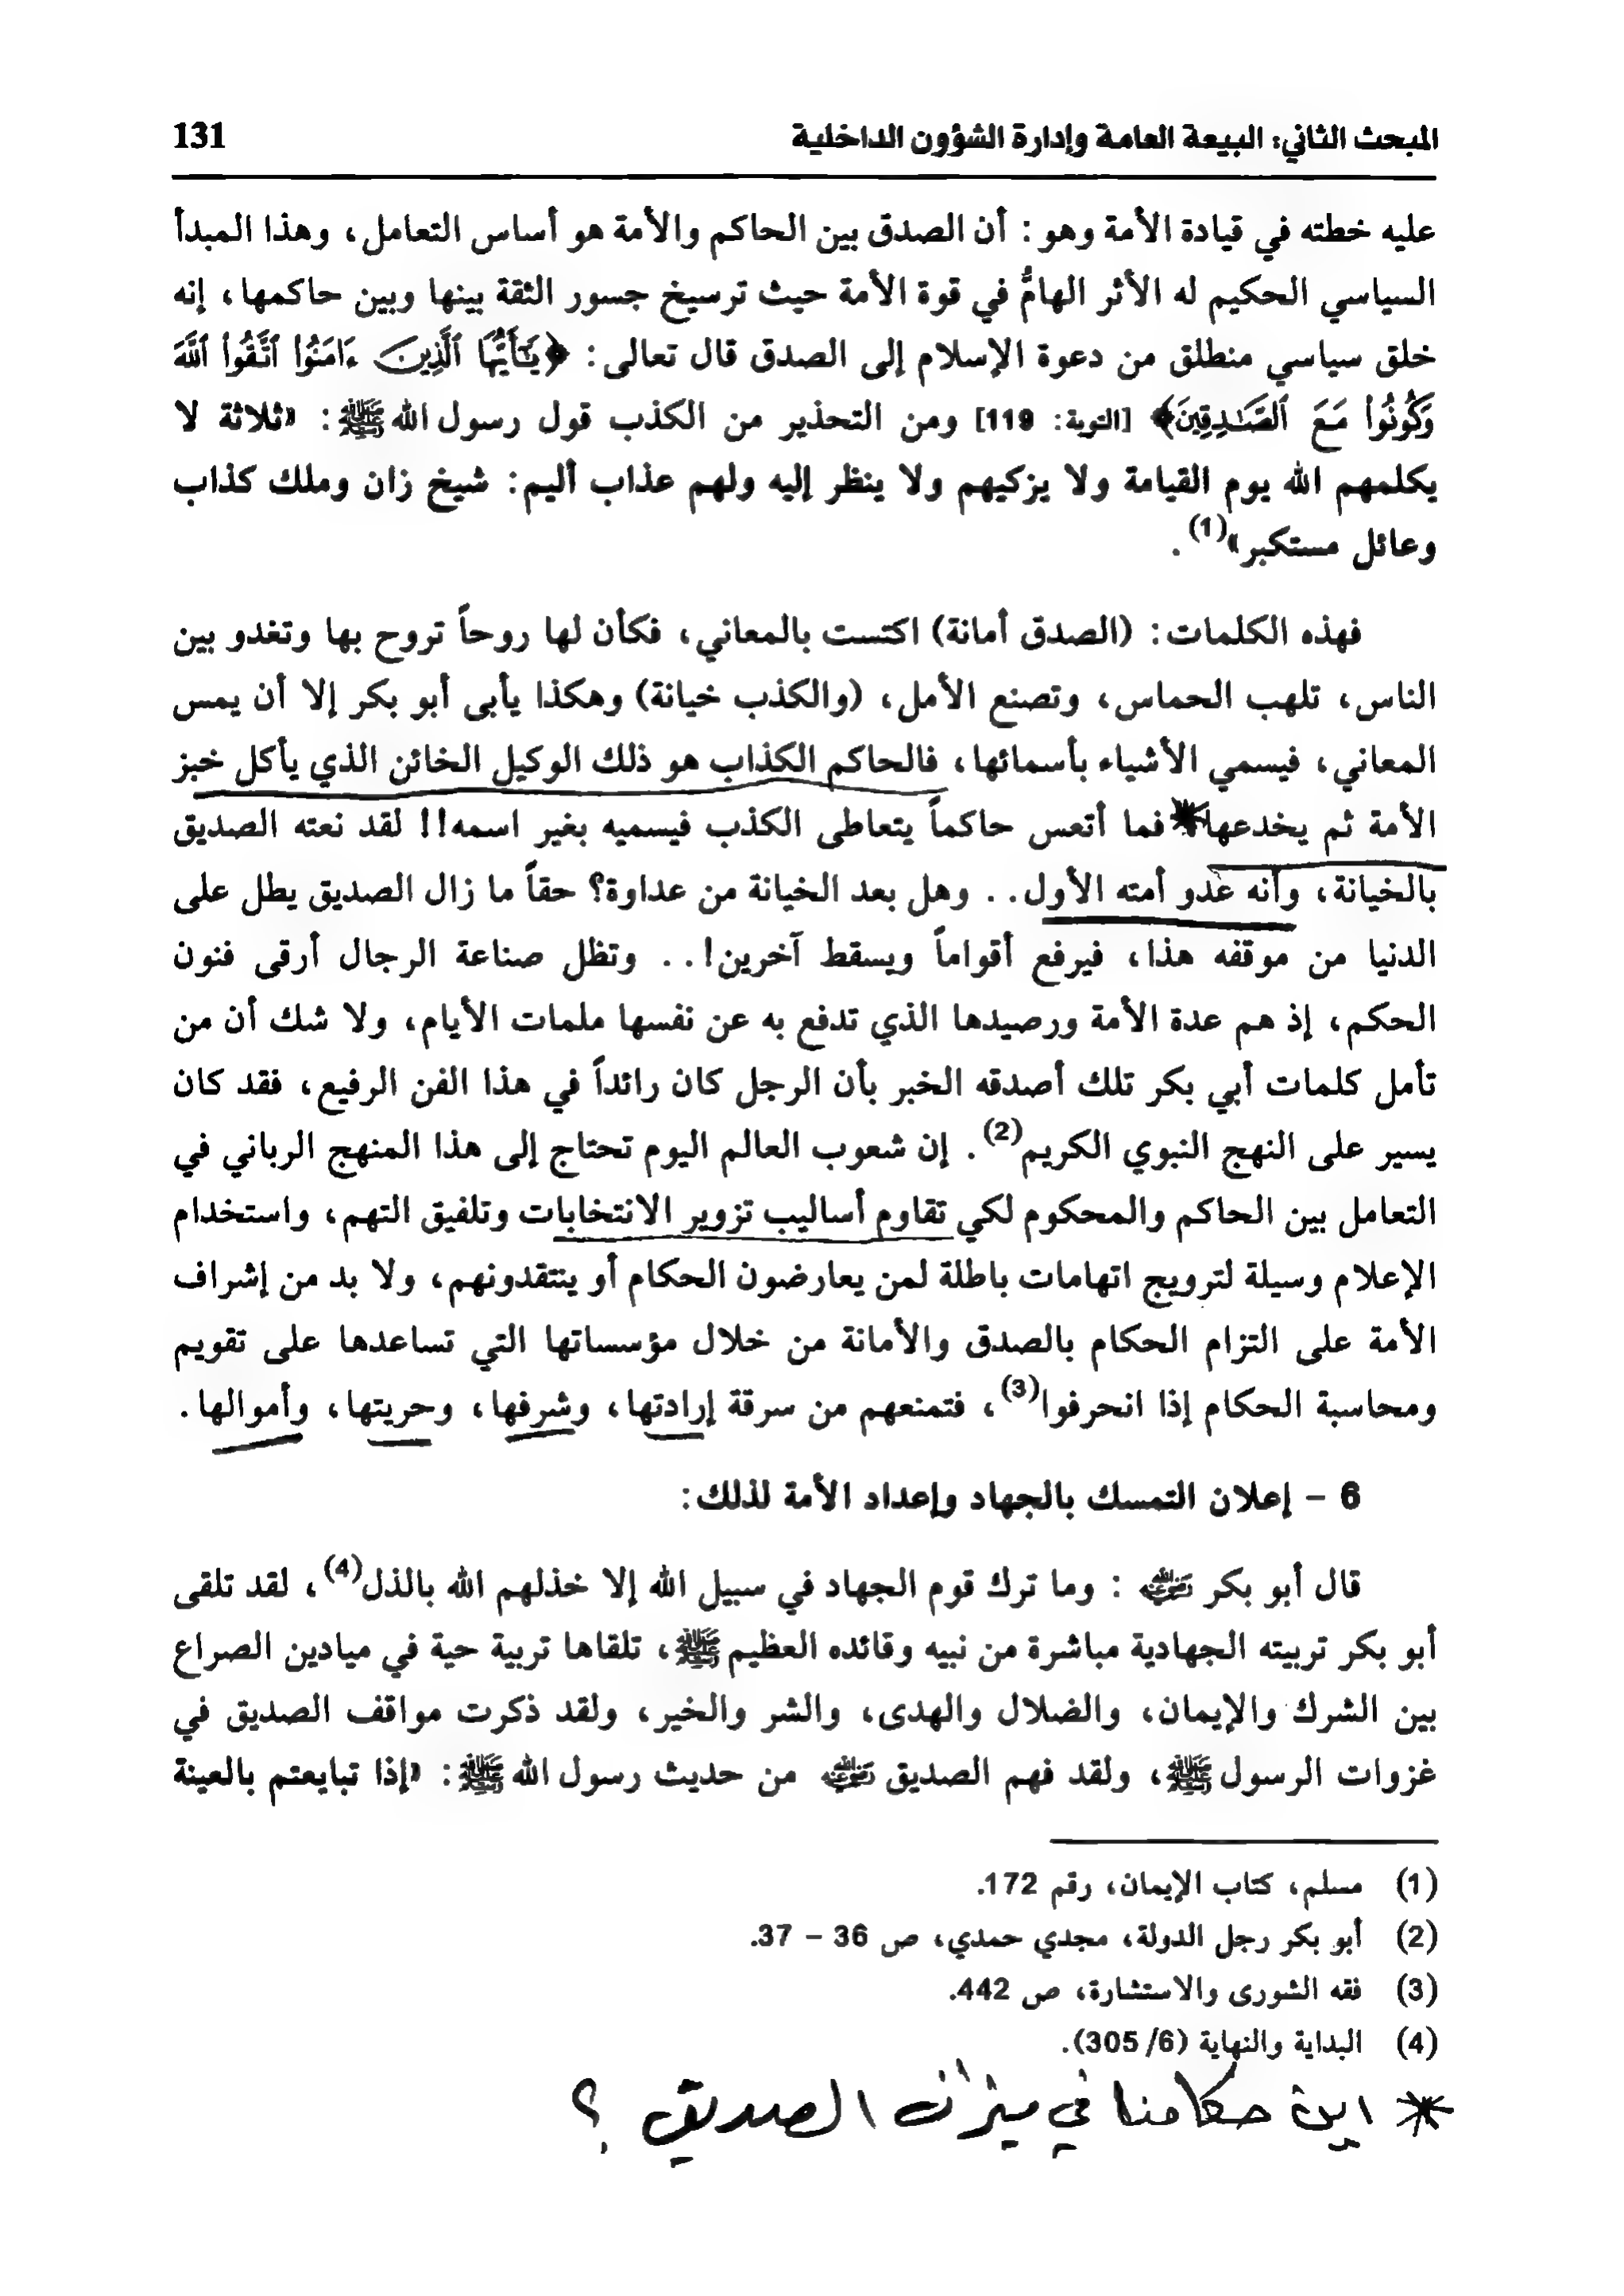 المبحث الثاني: البيعة العامة وإدارة الشؤون الداخلية 131
عليه خطته في قيادة الأمة وهو: أن الصدق بين الحاكم والأمة هو أساس التعامل، وهذا المبدأ
السياسي الحكيم له الأثر الهامُّ في قوة الأمة حيث ترسيخ جسور الثقة بينها وبين حاكمها، إنه
خلق سياسي منطلق من دعوة الإسلام إلى الصدق قال تعالى: ﴿يَٰٓأَيُّهَا ٱلَّذِينَ ءَامَنُوا۟ ٱتَّقُوا۟ ٱللَّهَ
وَكُونُوا۟ مَعَ ٱلصَّٰدِقِينَ﴾ [التوبة: 119] ومن التحذير من الكذب قول رسول الله ﷺ: «ثلاثة لا
يكلمهم الله يوم القيامة ولا يزكيهم ولا ينظر إليه ولهم عذاب أليم: شيخ زان وملك كذاب
وعائل مستكبر»(1).
فهذه الكلمات: (الصدق أمانة) اكتست بالمعاني، فكأن لها روحاً تروح بها وتغدو بين
الناس، تلهب الحماس، وتصنع الأمل، (والكذب خيانة) وهكذا يأبى أبو بكر إلا أن يمس
المعاني، فيسمي الأشياء بأسمائها، فالحاكم الكذاب هو ذلك الوكيل الخائن الذي يأكل خبز
الأمة ثم يخدعها* فما أتعس حاكماً يتعاطى الكذب فيسميه بغير اسمه!! لقد نعته الصديق
بالخيانة، وأنه عدو أمته الأول.. وهل بعد الخيانة من عداوة؟ حقاً ما زال الصديق يطل على
الدنيا من موقفه هذا، فيرفع أقواماً ويسقط آخرين!.. وتظل صناعة الرجال أرقى فنون
الحكم، إذ هم عدة الأمة ورصيدها الذي تدفع به عن نفسها ملمات الأيام، ولا شك أن من
تأمل كلمات أبي بكر تلك أصدقه الخبر بأن الرجل كان رائداً في هذا الفن الرفيع، فقد كان
يسير على النهج النبوي الكريم(2). إن شعوب العالم اليوم تحتاج إلى هذا المنهج الرباني في
التعامل بين الحاكم والمحكوم لكي تقاوم أساليب تزوير الانتخابات وتلفيق التهم، واستخدام
الإعلام وسيلة لترويج اتهامات باطلة لمن يعارضون الحكام أو ينتقدونهم، ولا بد من إشراف
الأمة على التزام الحكام بالصدق والأمانة من خلال مؤسساتها التي تساعدها على تقويم
ومحاسبة الحكام إذا انحرفوا(3)، فتمنعهم من سرقة إرادتها، وشرفها، وحريتها، وأموالها.
6 – إعلان التمسك بالجهاد وإعداد الأمة لذلك:
قال أبو بكر رضي الله عنه: وما ترك قوم الجهاد في سبيل الله إلا خذلهم الله بالذل(4)، لقد تلقى
أبو بكر تربيته الجهادية مباشرة من نبيه وقائده العظيم ﷺ، تلقاها تربية حية في ميادين الصراع
بين الشرك والإيمان، والضلال والهدى، والشر والخير، ولقد ذكرت مواقف الصديق في
غزوات الرسول ﷺ، ولقد فهم الصديق رضي الله عنه من حديث رسول الله ﷺ: «إذا تبايعتم بالعينة
(1) مسلم، كتاب الإيمان، رقم 172.
(2) أبو بكر رجل الدولة، مجدي حمدي، ص 36 – 37.
(3) فقه الشورى والاستشارة، ص 442.
(4) البداية والنهاية (6/305).
* اين حكامنا في ميزان الصديق ؟